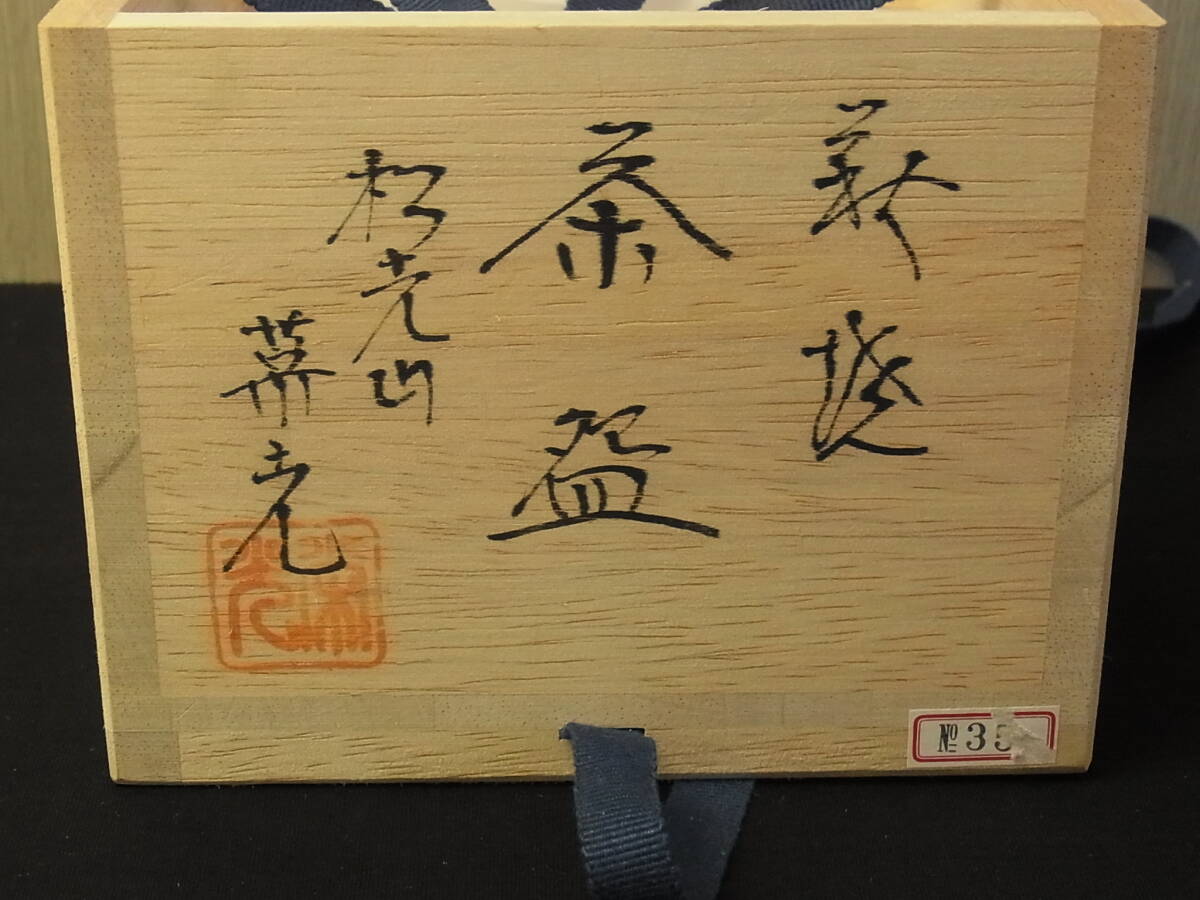 萩焼
茶盌
松光山
華光
№35